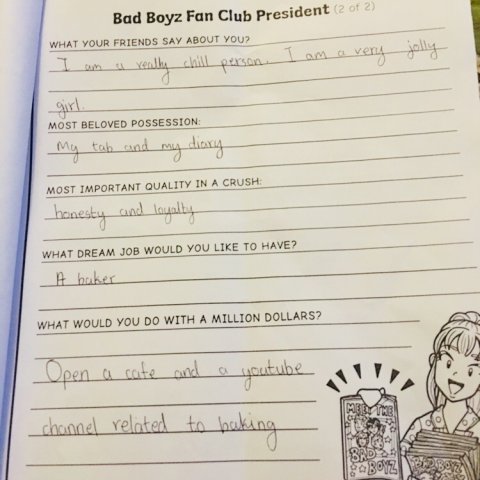 Bad Boyz Fan Club President (2 of 2)
WHAT YOUR FRIENDS SAY ABOUT YOU?
I am a really chill person. I am a very jolly
girl.
MOST BELOVED POSSESSION:
My tab and my diary
MOST IMPORTANT QUALITY IN A CRUSH:
honesty and loyalty
WHAT DREAM JOB WOULD YOU LIKE TO HAVE?
A baker
WHAT WOULD YOU DO WITH A MILLION DOLLARS?
Open a cafe and a youtube
channel related to baking
MEET THE
BAD
BOYZ
BAD BOYZ